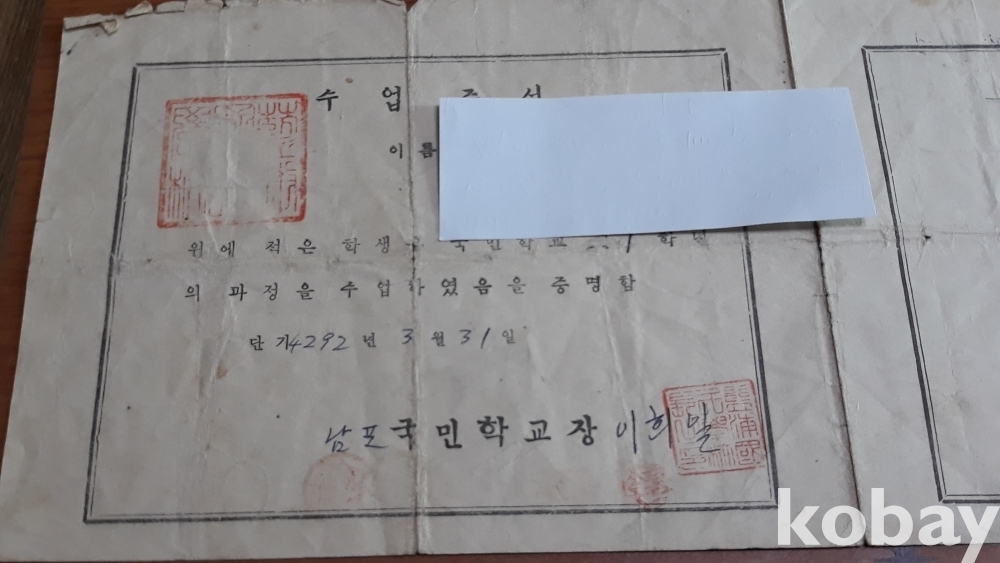 수 업 증 서
이 름
위에 적은 학생은 국민학교 1 학년
의 과정을 수업하였음을 증명함
단기4292년 3월 31일
남포국민학교장 이희밀
kobay